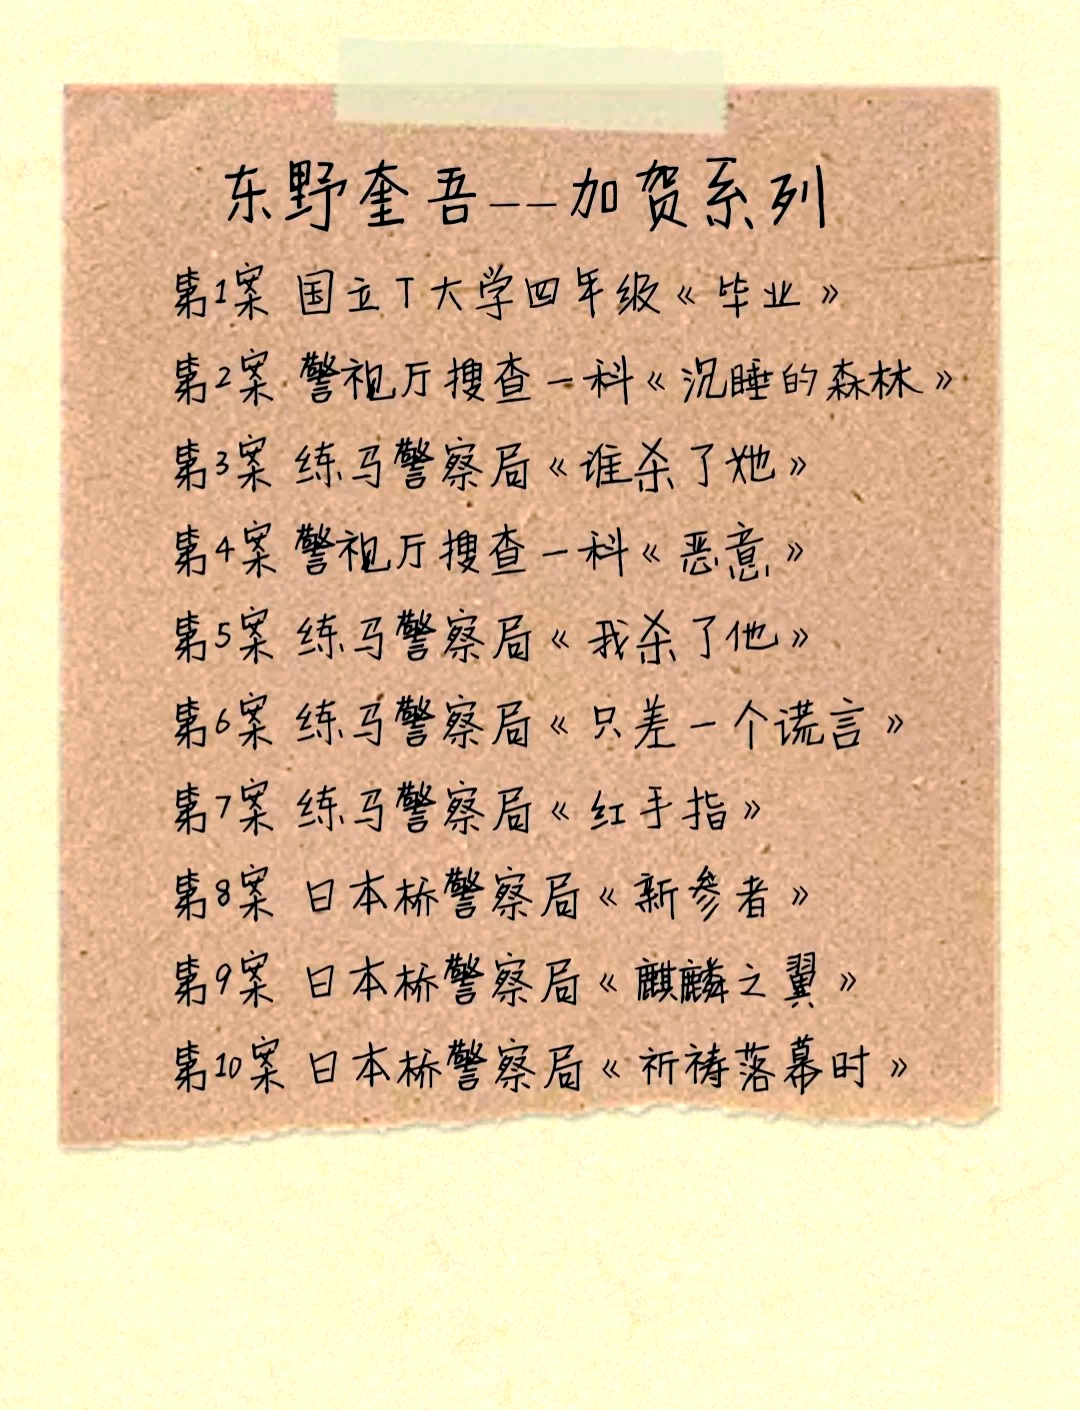 东野奎吾--加贺系列
第1案 国立T大学四年级《毕业》
第2案 警视厅搜查一科《沉睡的森林》
第3案 练马警察局《谁杀了她》
第4案 警视厅搜查一科《恶意》
第5案 练马警察局《我杀了他》
第6案 练马警察局《只差一个谎言》
第7案 练马警察局《红手指》
第8案 日本桥警察局《新参者》
第9案 日本桥警察局《麒麟之翼》
第10案 日本桥警察局《祈祷落幕时》